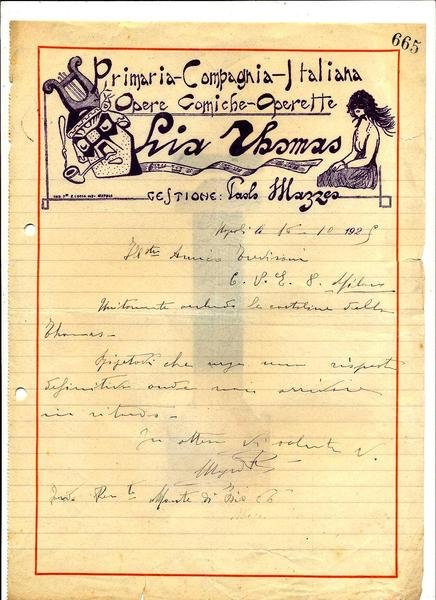 665
Primaria-Compagnia-Italiana
Opere Comiche-Operette
Lia Thomas
GESTIONE: Paolo Mazzeo
Napoli 16-10 192
Amico
C. V. E. 8. Milano
Unitamente le cartoline della
Thomas-
che urge una risposta
definitiva onde non arrivare
in ritardo-
In attesa vi saluto
Monte di Dio 66